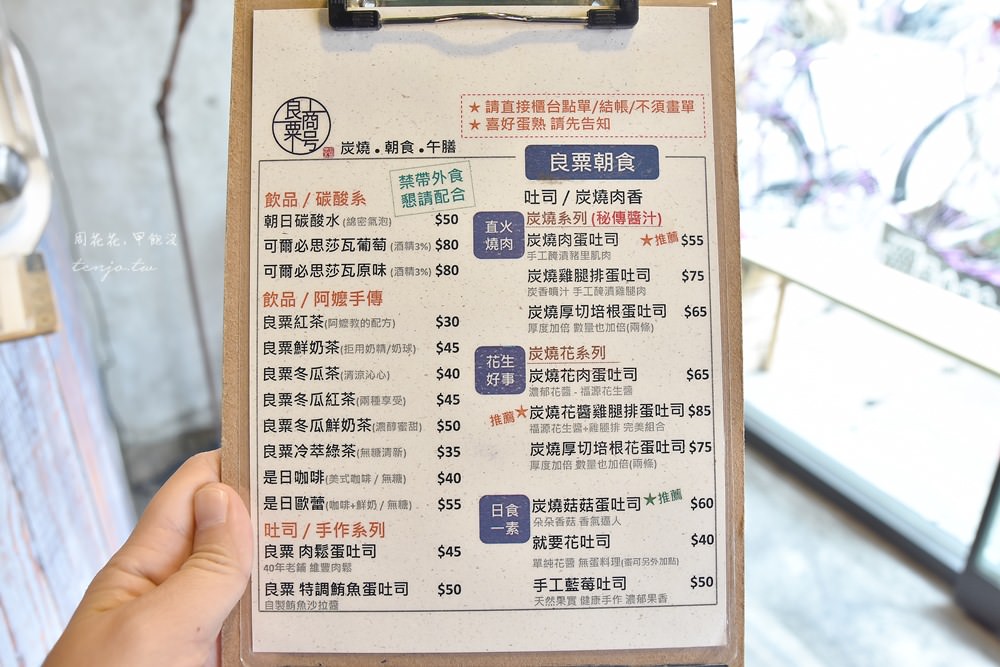 良粟商号
炭燒．朝食．午膳
★ 請直接櫃台點單/結帳/不須畫單
★ 喜好蛋熟 請先告知
禁帶外食
懇請配合
飲品 / 碳酸系
朝日碳酸水(綿密氣泡) $50
可爾必思莎瓦葡萄(酒精3%) $80
可爾必思莎瓦原味(酒精3%) $80
飲品 / 阿嬤手傳
良粟紅茶(阿嬤教的配方) $30
良粟鮮奶茶(拒用奶精/奶球) $45
良粟冬瓜茶(清涼沁心) $40
良粟冬瓜紅茶(兩種享受) $45
良粟冬瓜鮮奶茶(濃醇蜜甜) $50
良粟冷萃綠茶(無糖清新) $35
是日咖啡(美式咖啡 / 無糖) $40
是日歐蕾(咖啡+鮮奶 / 無糖) $55
吐司 / 手作系列
良粟 肉鬆蛋吐司 $45
40年老鋪 維豐肉鬆
良粟 特調鮪魚蛋吐司 $50
自製鮪魚沙拉醬
良粟朝食
吐司 / 炭燒肉香
直火
燒肉
炭燒系列(秘傳醬汁)
炭燒肉蛋吐司 ★推薦 $55
手工醃漬豬里肌肉
炭燒雞腿排蛋吐司 $75
炭香噴汁 手工醃漬雞腿肉
炭燒厚切培根蛋吐司 $65
厚度加倍 數量也加倍(兩條)
花生
好事
炭燒花系列
炭燒花肉蛋吐司 $65
濃郁花醬 - 福源花生醬
推薦★炭燒花醬雞腿排蛋吐司 $85
福源花生醬+雞腿排 完美組合
炭燒厚切培根花蛋吐司 $75
厚度加倍 數量也加倍(兩條)
日食
一素
炭燒菇菇蛋吐司 ★推薦 $60
朵朵香菇 香氣逼人
就要花吐司 $40
單純花醬 無蛋料理(蛋可另外加點)
手工藍莓吐司 $50
天然果實 健康手作 濃郁果香
周花花，甲飽沒
tenjo.tw